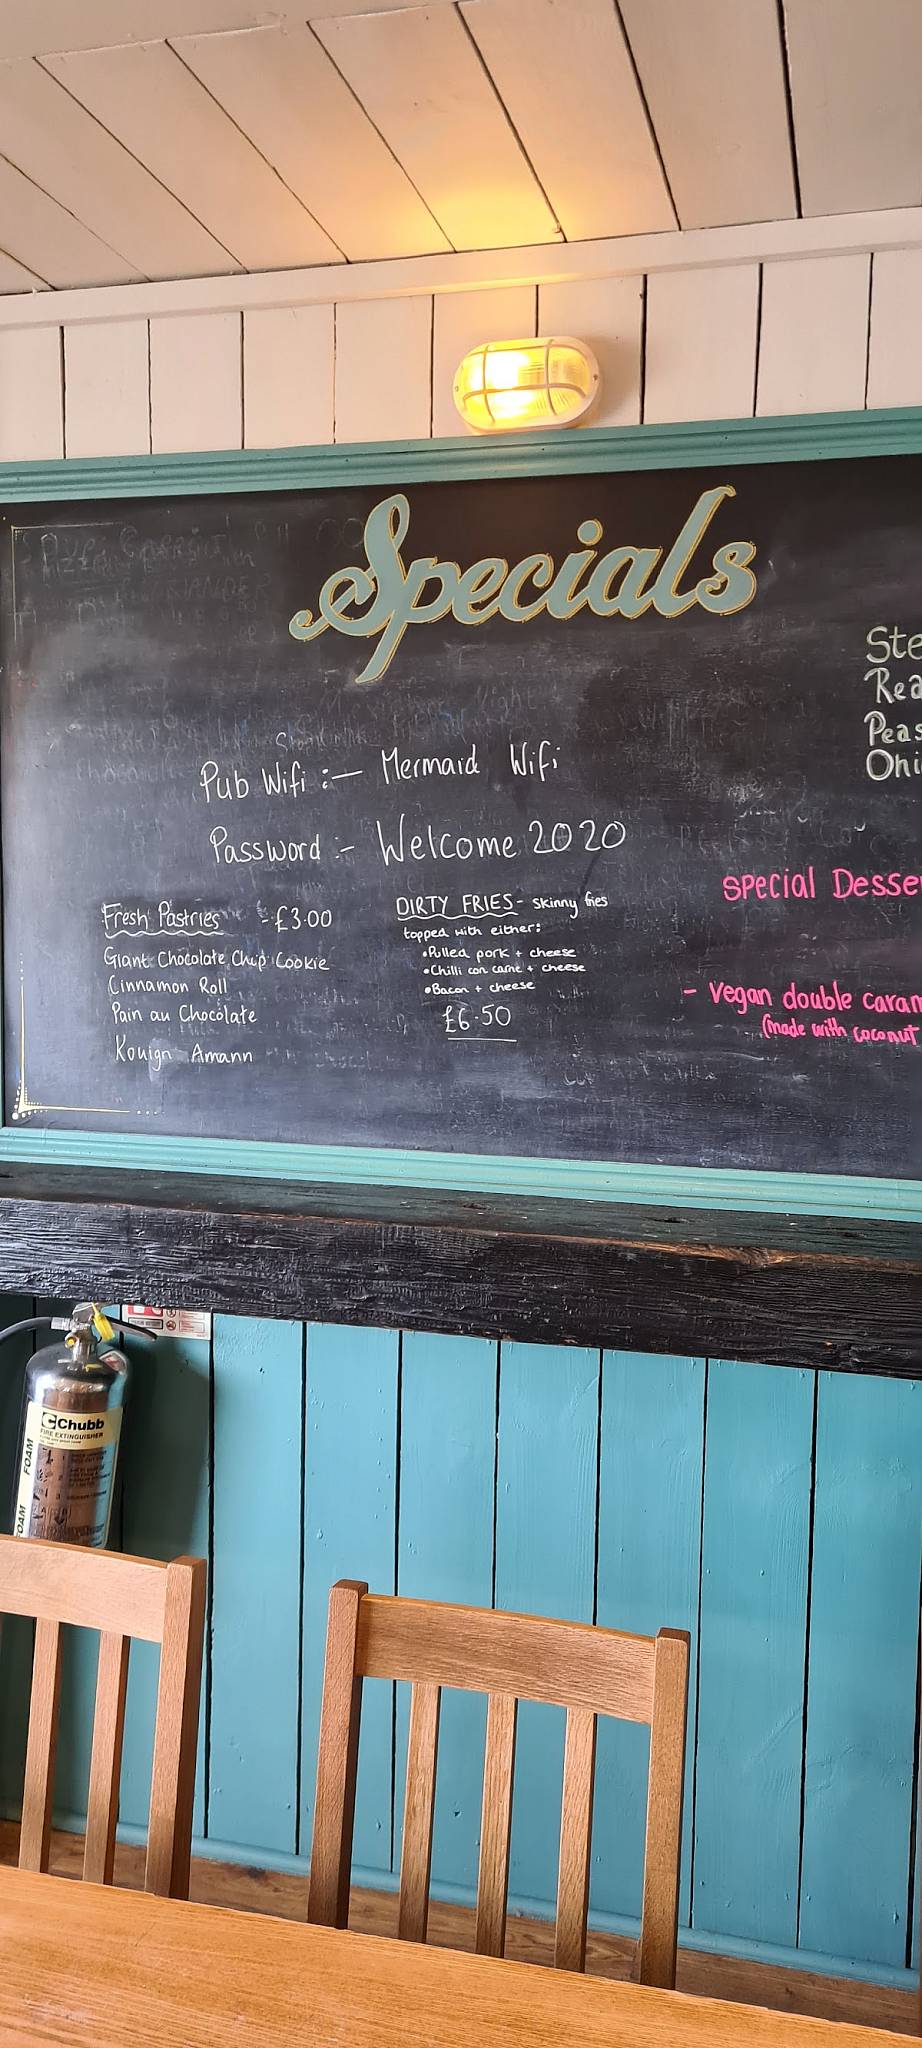 Specials
Pub Wifi :- Mermaid Wifi
Password :- Welcome 2020
Fresh Pastries - £3.00
Giant Chocolate Chip Cookie
Cinnamon Roll
Pain au Chocolate
Kouign Amann
DIRTY FRIES - skinny fries
topped with either:
•Pulled pork + cheese
•Chilli con carne + cheese
•Bacon + cheese
£6.50
Ste
Rea
Peas
Oni
Special Desse
- Vegan double caram
(made with coconut
Chubb
FIRE EXTINGUISHER
FOAM
FOAM